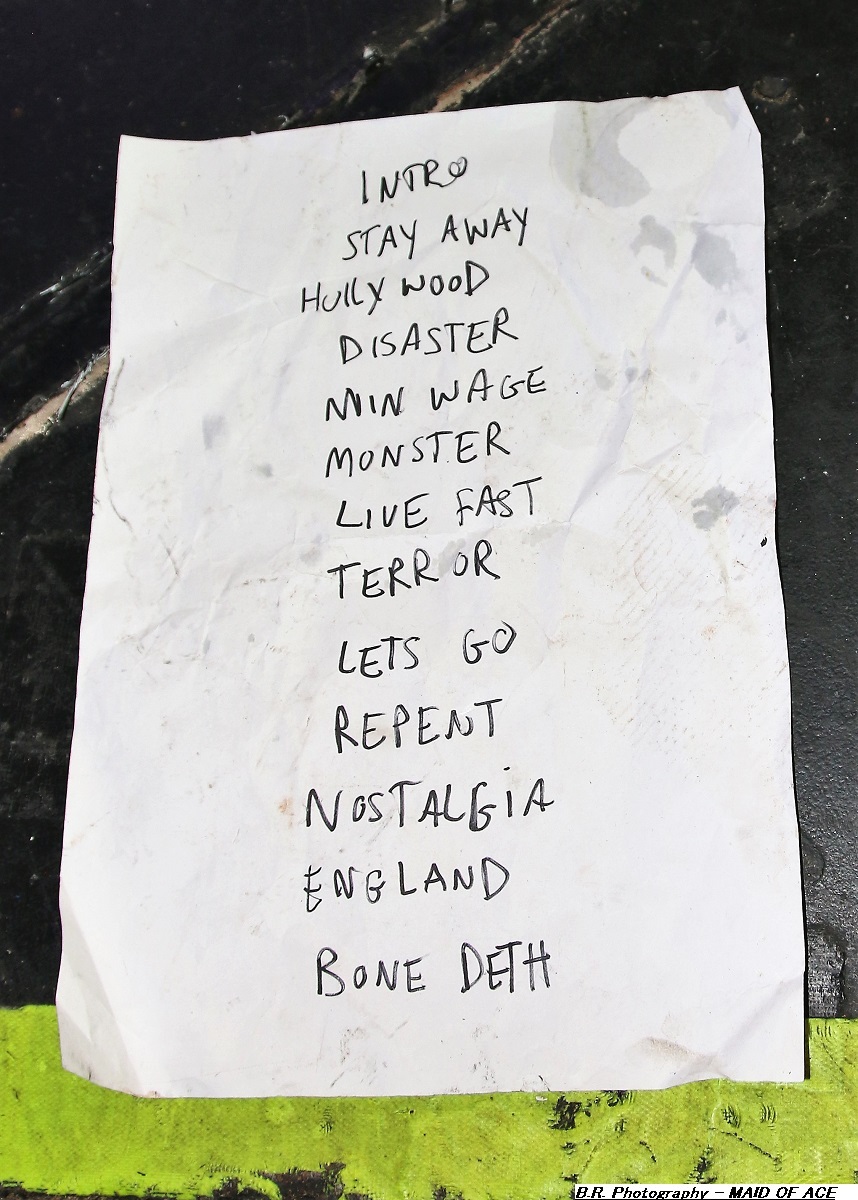 INTRO
STAY AWAY
HOLLYWOOD
DISASTER
MIN WAGE
MONSTER
LIVE FAST
TERROR
LETS GO
REPENT
NOSTALGIA
ENGLAND
BONE DETH
B.R. Photography - MAID OF ACE